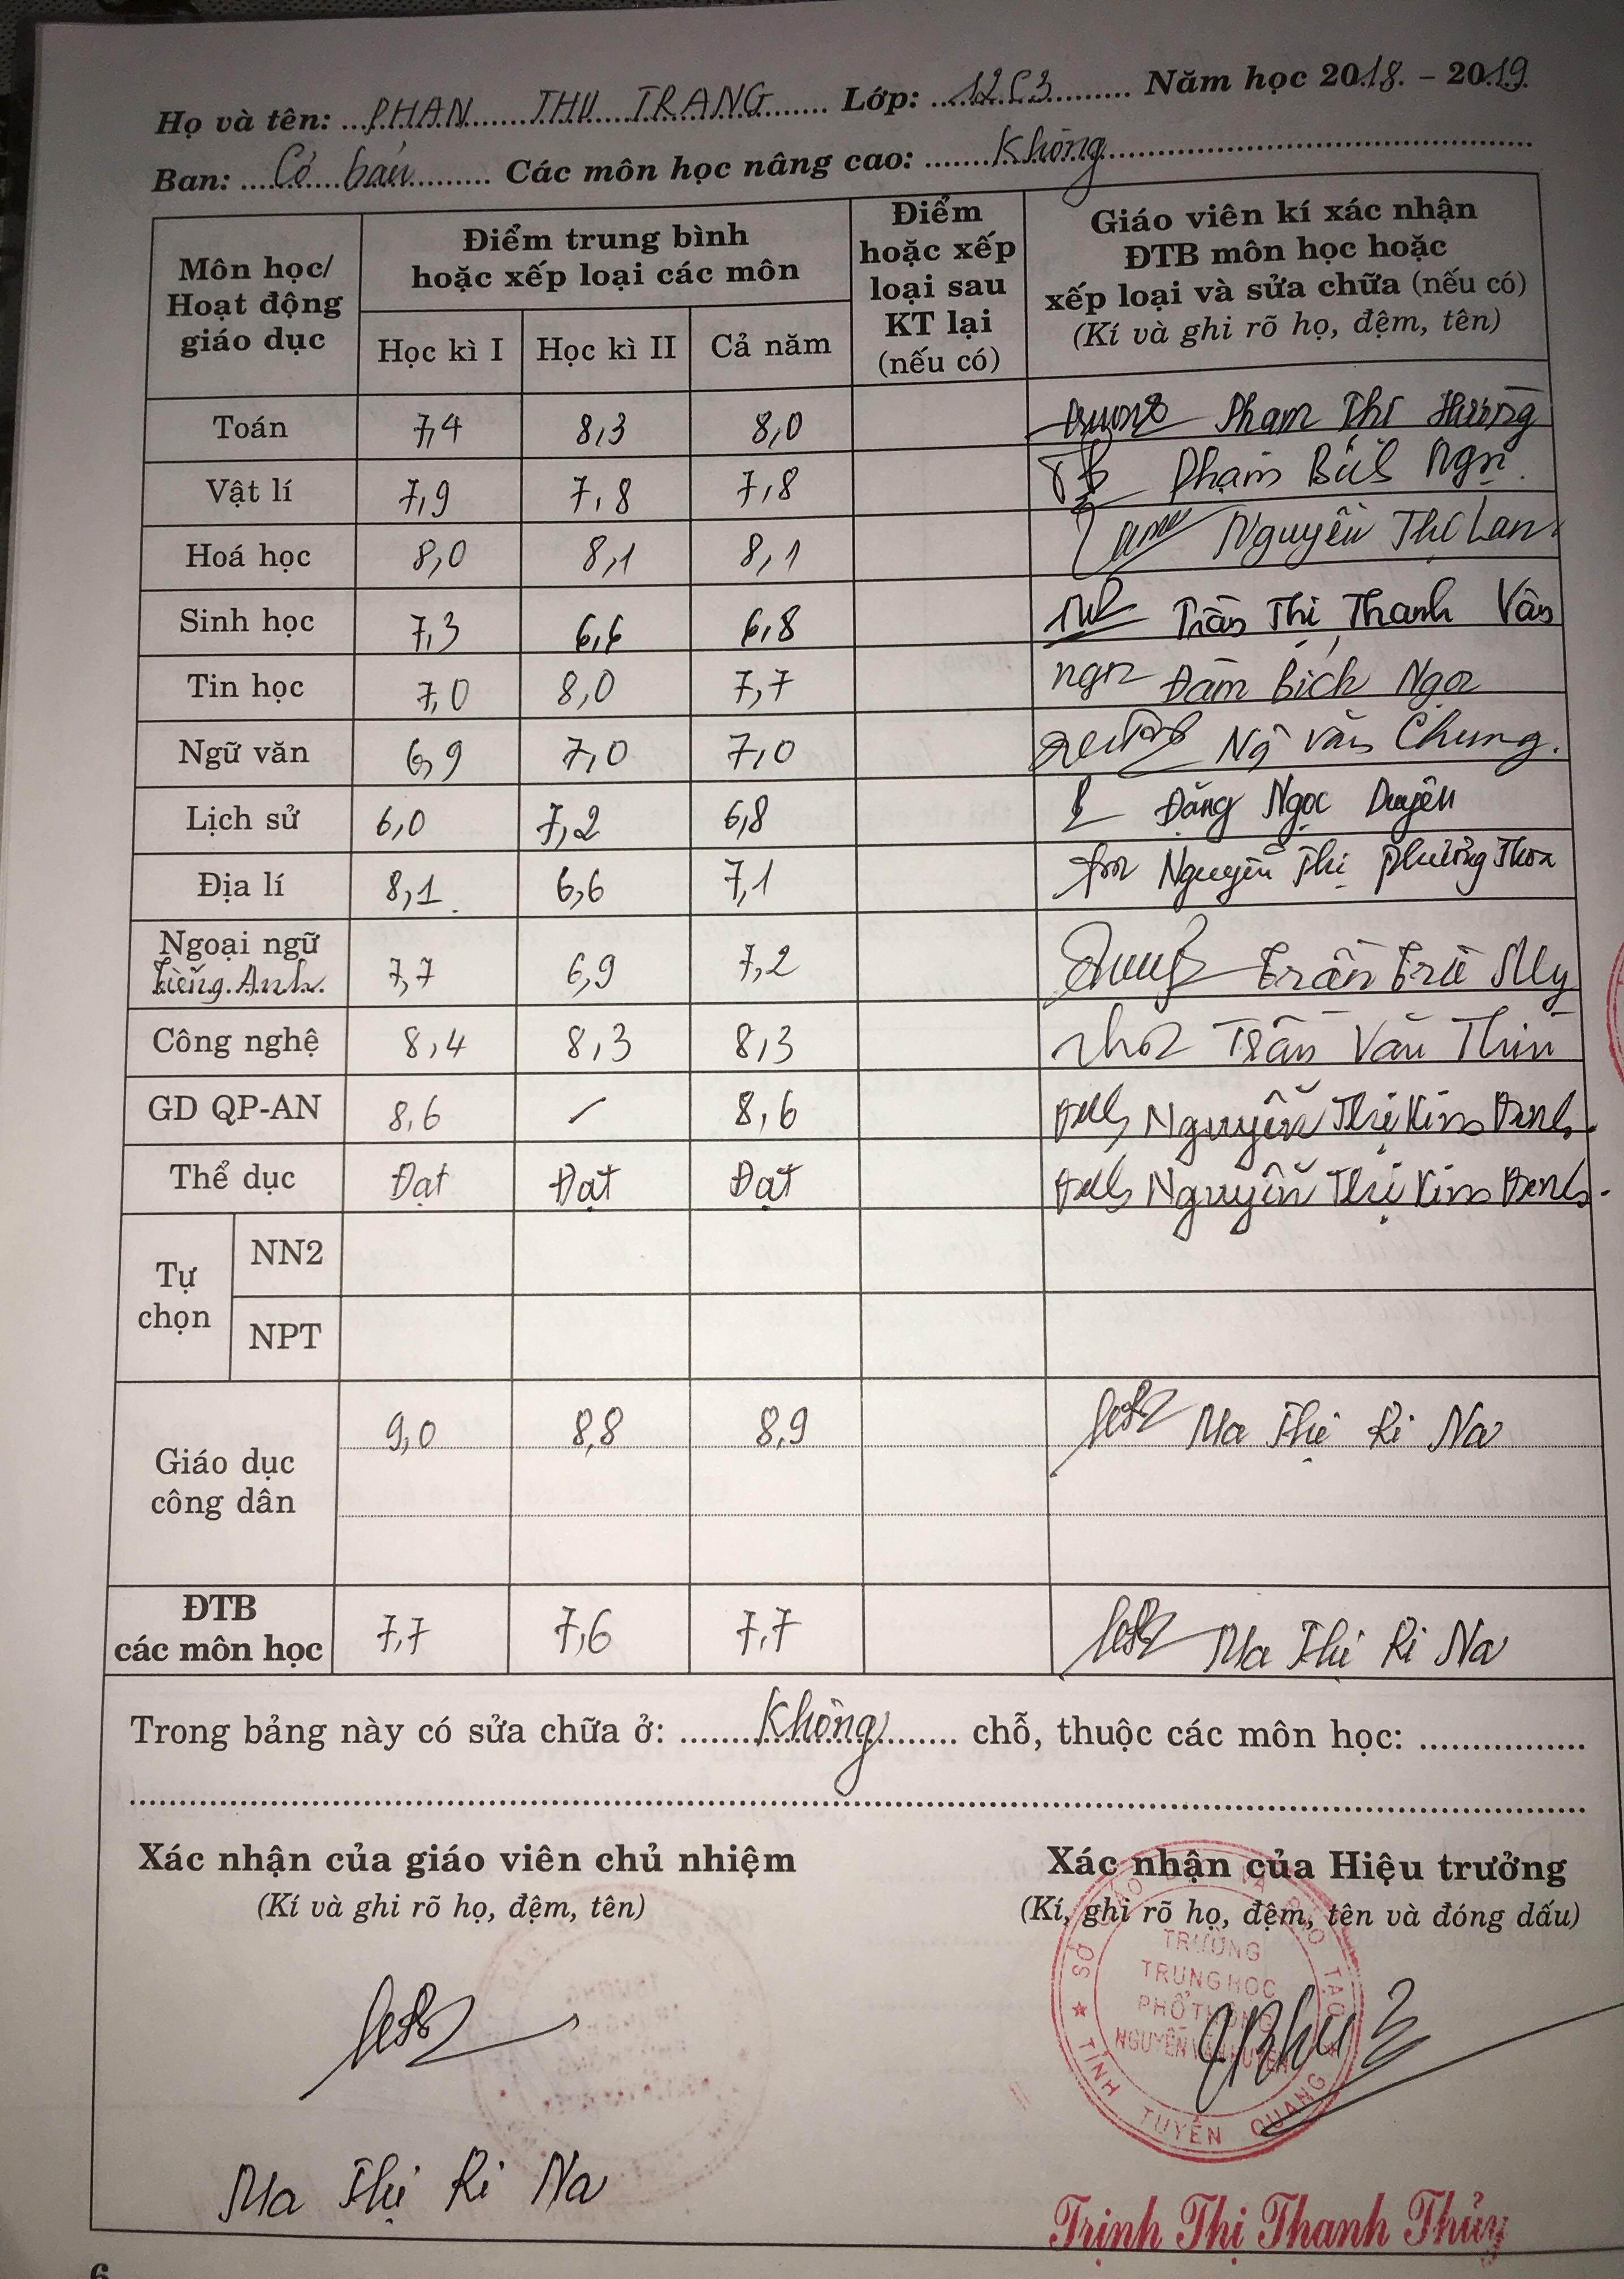 Họ và tên: PHAN THU TRANG Lớp: 12C3 Năm học 2018 - 2019
Ban: Cơ bản Các môn học nâng cao: Không
Môn học/ Hoạt động giáo dục
Điểm trung bình hoặc xếp loại các môn
Điểm hoặc xếp loại sau KT lại (nếu có)
Giáo viên kí xác nhận ĐTB môn học hoặc xếp loại và sửa chữa (nếu có) (Kí và ghi rõ họ, đệm, tên)
Học kì I Học kì II Cả năm
Toán 7,4 8,3 8,0 Phạm Thị Hường
Vật lí 7,9 7,8 7,8 Phạm Bích
Hoá học 8,0 8,1 8,1 Nguyễn Thị Lan
Sinh học 7,3 6,6 6,8 Trần Thị Thanh Vân
Tin học 7,0 8,0 7,7 Đàm Bích Ngọc
Ngữ văn 6,9 7,0 7,0 Ngô Văn Chung.
Lịch sử 6,0 7,2 6,8 Đặng Ngọc Duyên
Địa lí 8,1 6,6 7,1 Nguyễn Thị Phương Thoa
Ngoại ngữ
Tiếng Anh 7,7 6,9 7,2 Trần Trà My
Công nghệ 8,4 8,3 8,3 Trần Văn Thìn
GD QP-AN 8,6 / 8,6 Nguyễn Thị Kim
Thể dục Đạt Đạt Đạt Nguyễn Thị Kim
Tự chọn
NN2
NPT
Giáo dục công dân 9,0 8,8 8,9 Ma Thị Ri Na
ĐTB các môn học 7,7 7,6 7,7 Ma Thị Ri Na
Trong bảng này có sửa chữa ở: Không chỗ, thuộc các môn học:
Xác nhận của giáo viên chủ nhiệm
(Kí và ghi rõ họ, đệm, tên)
Xác nhận của Hiệu trưởng
(Kí, ghi rõ họ, đệm, tên và đóng dấu)
SỞ GIÁO DỤC VÀ ĐÀO TẠO
TRƯỜNG
TRUNG HỌC
PHỔ THÔNG
NGUYỄN VĂN HUYÊN
★ TỈNH TUYÊN QUANG ★
Ma Thị Ri Na
Trịnh Thị Thanh Thủy
6